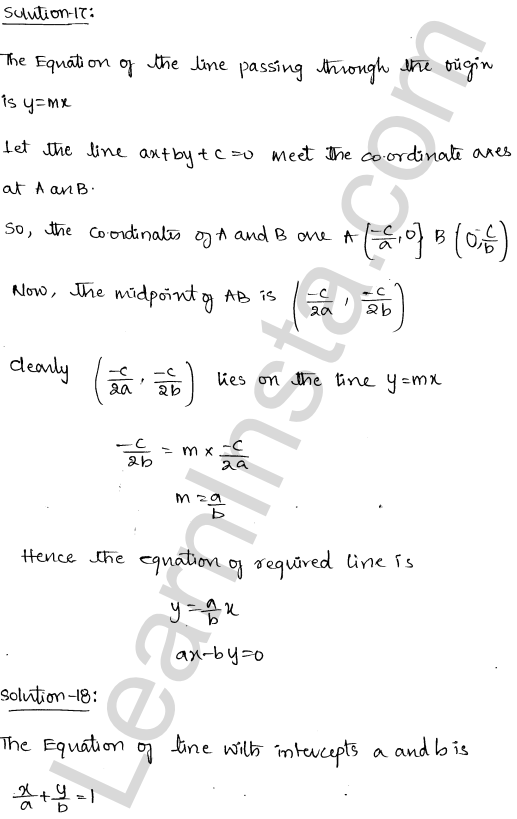 Solution-17:
The Equation of the line passing through the origin
is y=mx
Let the line ax+by+c=0 meet the co-ordinate axes
at A an B.
So, the co-ordinates of A and B are A {-c/a, 0} B (0, -c/b)
Now, the midpoint of AB is (-c/2a, -c/2b)
Clearly (-c/2a, -c/2b) lies on the line y=mx
-c/2b = m × -c/2a
m = a/b
Hence the equation of required line is
y = a/b x
ax-by=0
Solution-18:
The Equation of line with intercepts a and b is
x/a + y/b = 1
LearnInsta.com